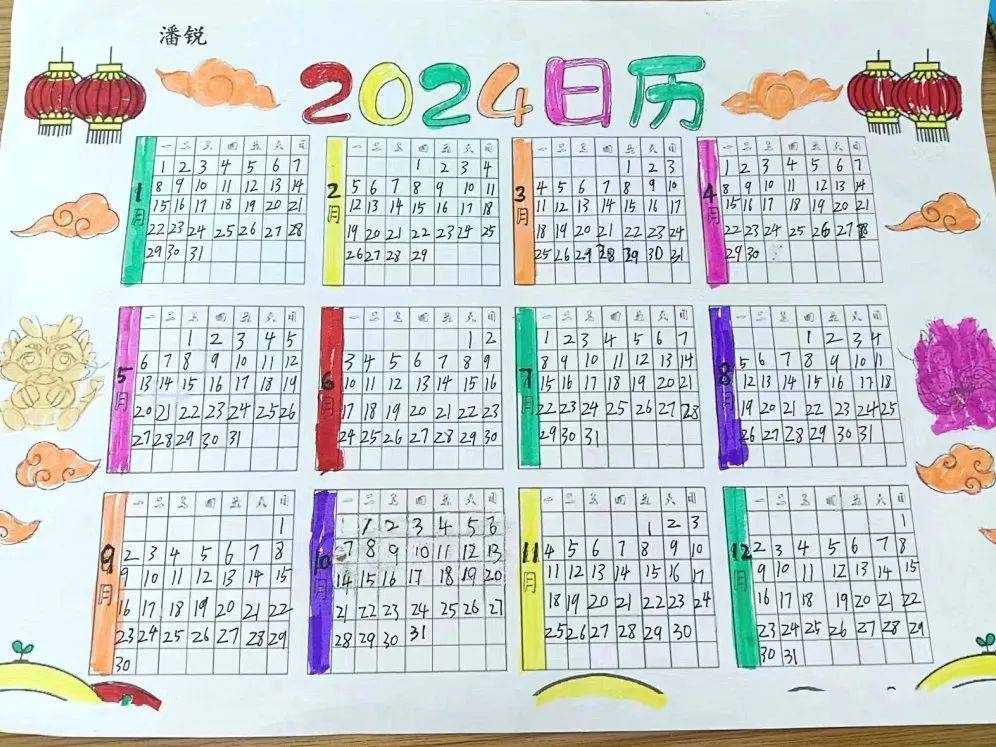 潘锐
2024日历
1月
一 二 三 四 五 六 日
1 2 3 4 5 6 7
8 9 10 11 12 13 14
15 16 17 18 19 20 21
22 23 24 25 26 27 28
29 30 31
2月
一 二 三 四 五 六 日
1 2 3 4
5 6 7 8 9 10 11
12 13 14 15 16 17 18
19 20 21 22 23 24 25
26 27 28 29
3月
一 二 三 四 五 六 日
1 2 3
4 5 6 7 8 9 10
11 12 13 14 15 16 17
18 19 20 21 22 23 24
25 26 27 28 29 30 31
4月
一 二 三 四 五 六 日
1 2 3 4 5 6 7
8 9 10 11 12 13 14
15 16 17 18 19 20 21
22 23 24 25 26 27 28
29 30
5月
一 二 三 四 五 六 日
1 2 3 4 5
6 7 8 9 10 11 12
13 14 15 16 17 18 19
20 21 22 23 24 25 26
27 28 29 30 31
6月
一 二 三 四 五 六 日
1 2
3 4 5 6 7 8 9
10 11 12 13 14 15 16
17 18 19 20 21 22 23
24 25 26 27 28 29 30
7月
一 二 三 四 五 六 日
1 2 3 4 5 6 7
8 9 10 11 12 13 14
15 16 17 18 19 20 21
22 23 24 25 26 27 28
29 30 31
8月
一 二 三 四 五 六 日
1 2 3 4
5 6 7 8 9 10 11
12 13 14 15 16 17 18
19 20 21 22 23 24 25
26 27 28 29 30 31
9月
一 二 三 四 五 六 日
1
2 3 4 5 6 7 8
9 10 11 12 13 14 15
16 17 18 19 20 21 22
23 24 25 26 27 28 29
30
10月
一 二 三 四 五 六 日
1 2 3 4 5 6
7 8 9 10 11 12 13
14 15 16 17 18 19 20
21 22 23 24 25 26 27
28 29 30 31
11月
一 二 三 四 五 六 日
1 2 3
4 5 6 7 8 9 10
11 12 13 14 15 16 17
18 19 20 21 22 23 24
25 26 27 28 29 30
12月
一 二 三 四 五 六 日
1
2 3 4 5 6 7 8
9 10 11 12 13 14 15
16 17 18 19 20 21 22
23 24 25 26 27 28 29
30 31